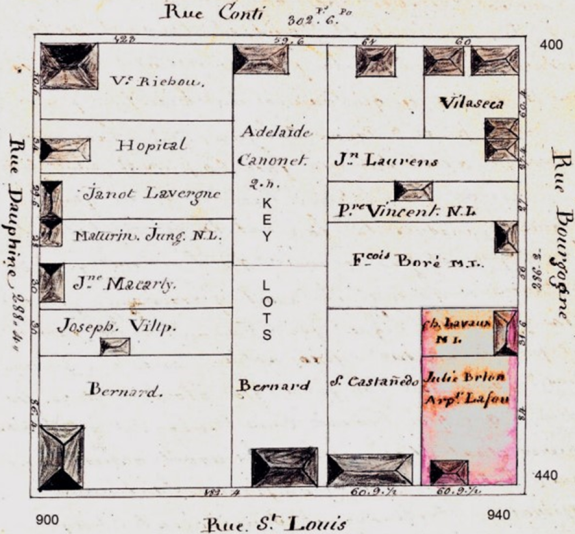 Rue Conti
302. 6.
400
60
Vilaseca
Adelaide
Canonet
2. h.
KEY
LOTS
Hopital
Jn Laurens
Janot Lavergne
Pre Vincent. N.L.
Maturin. Jung. N.L.
Fcois Boré M.L.
Jne Macarly.
Joseph. Vilip.
Bernard.
Bernard
S. Castañedo
Ch. Lavaux
M L
Julie Brion
Arpt Lafou
Rue Dauphine 288. 4.
Rue Bourgogne
286. 2.
60. 9. ½
60. 9. ½
440
900
940
Rue. St Louis